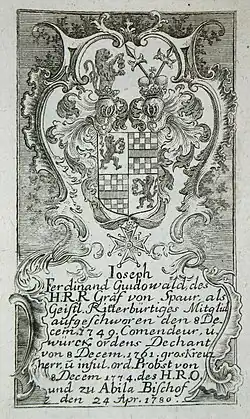 Joseph
Ferdinand Guidowald, des
H.R.R Graf von Spaur, als
Geistl. Ritterbürtiges Mitglid
aufgeschworen den 8 De-
cem. 1749. Comendeur, u.
würck. ordens Dechant
von 8 Decem. 1761. groskreuz
herr, u. inful. ord. Probst von
8 Decem 1774. des H.R.O.
und zu Abila Bischof
den 24 Apr. 1780.